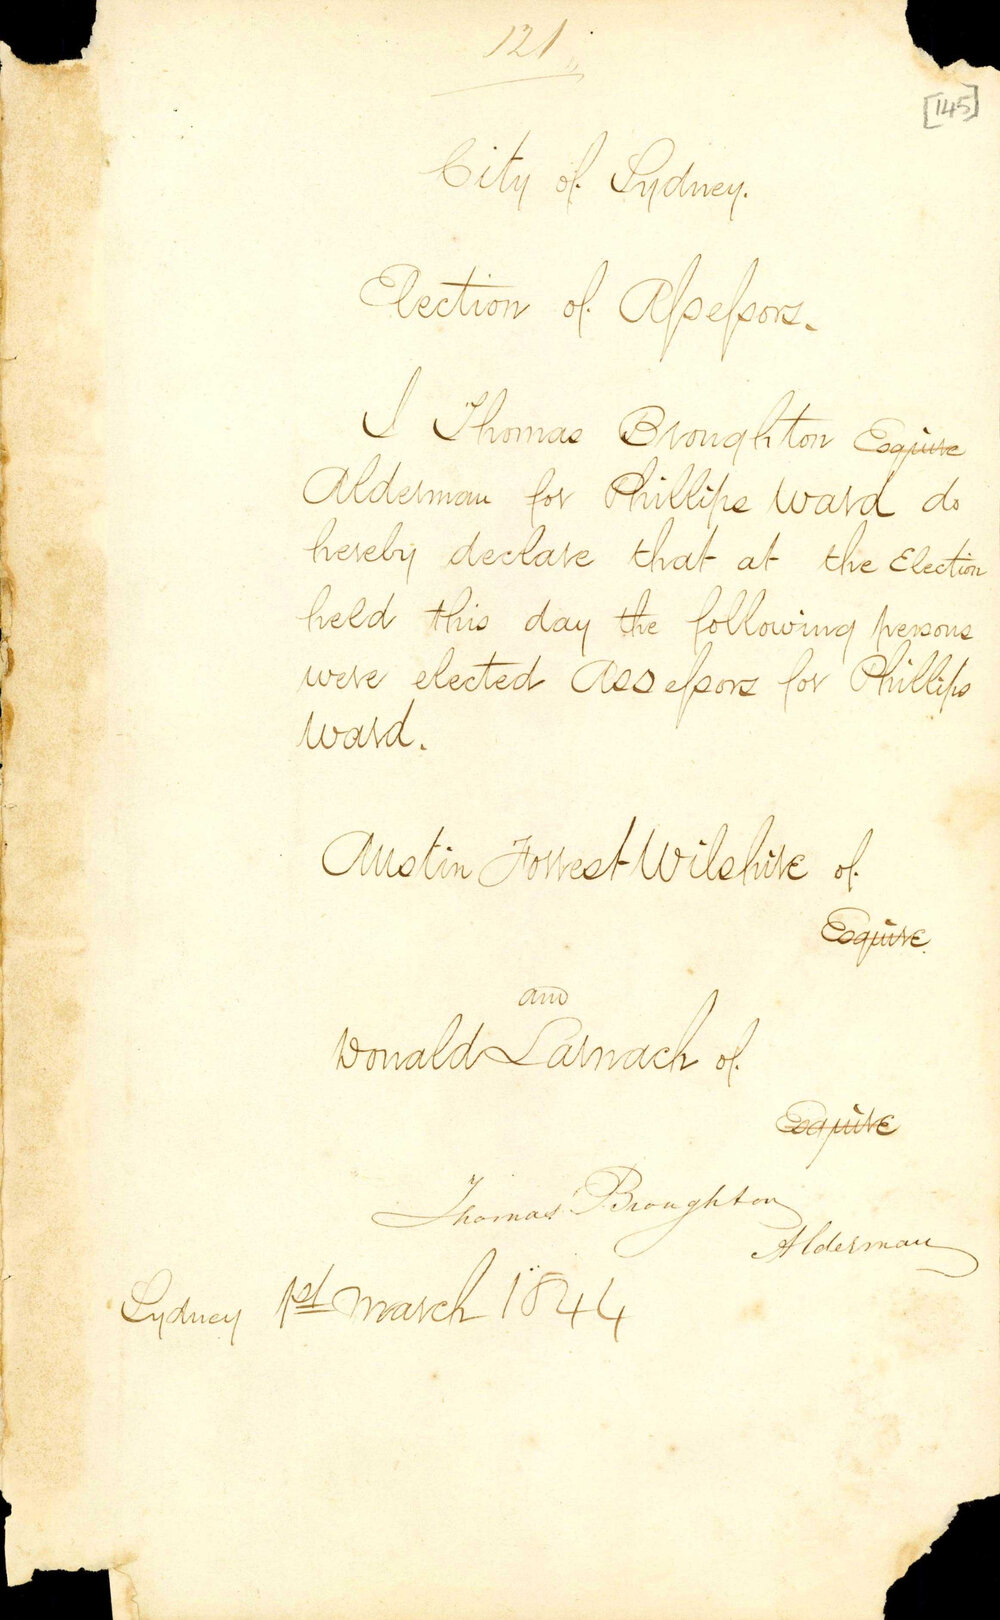 121
[145]
City of Sydney.
Election of Assessors.
I Thomas Broughton Esquire
Alderman for Phillips Ward do
hereby declare that at the Election
held this day the following persons
were elected Assessors for Phillips
Ward.
Austin Forrest Wilshire of
Esquire.
and
Donald Larnach of
Esquire
Thomas Broughton
Alderman
Sydney 1st March 1844